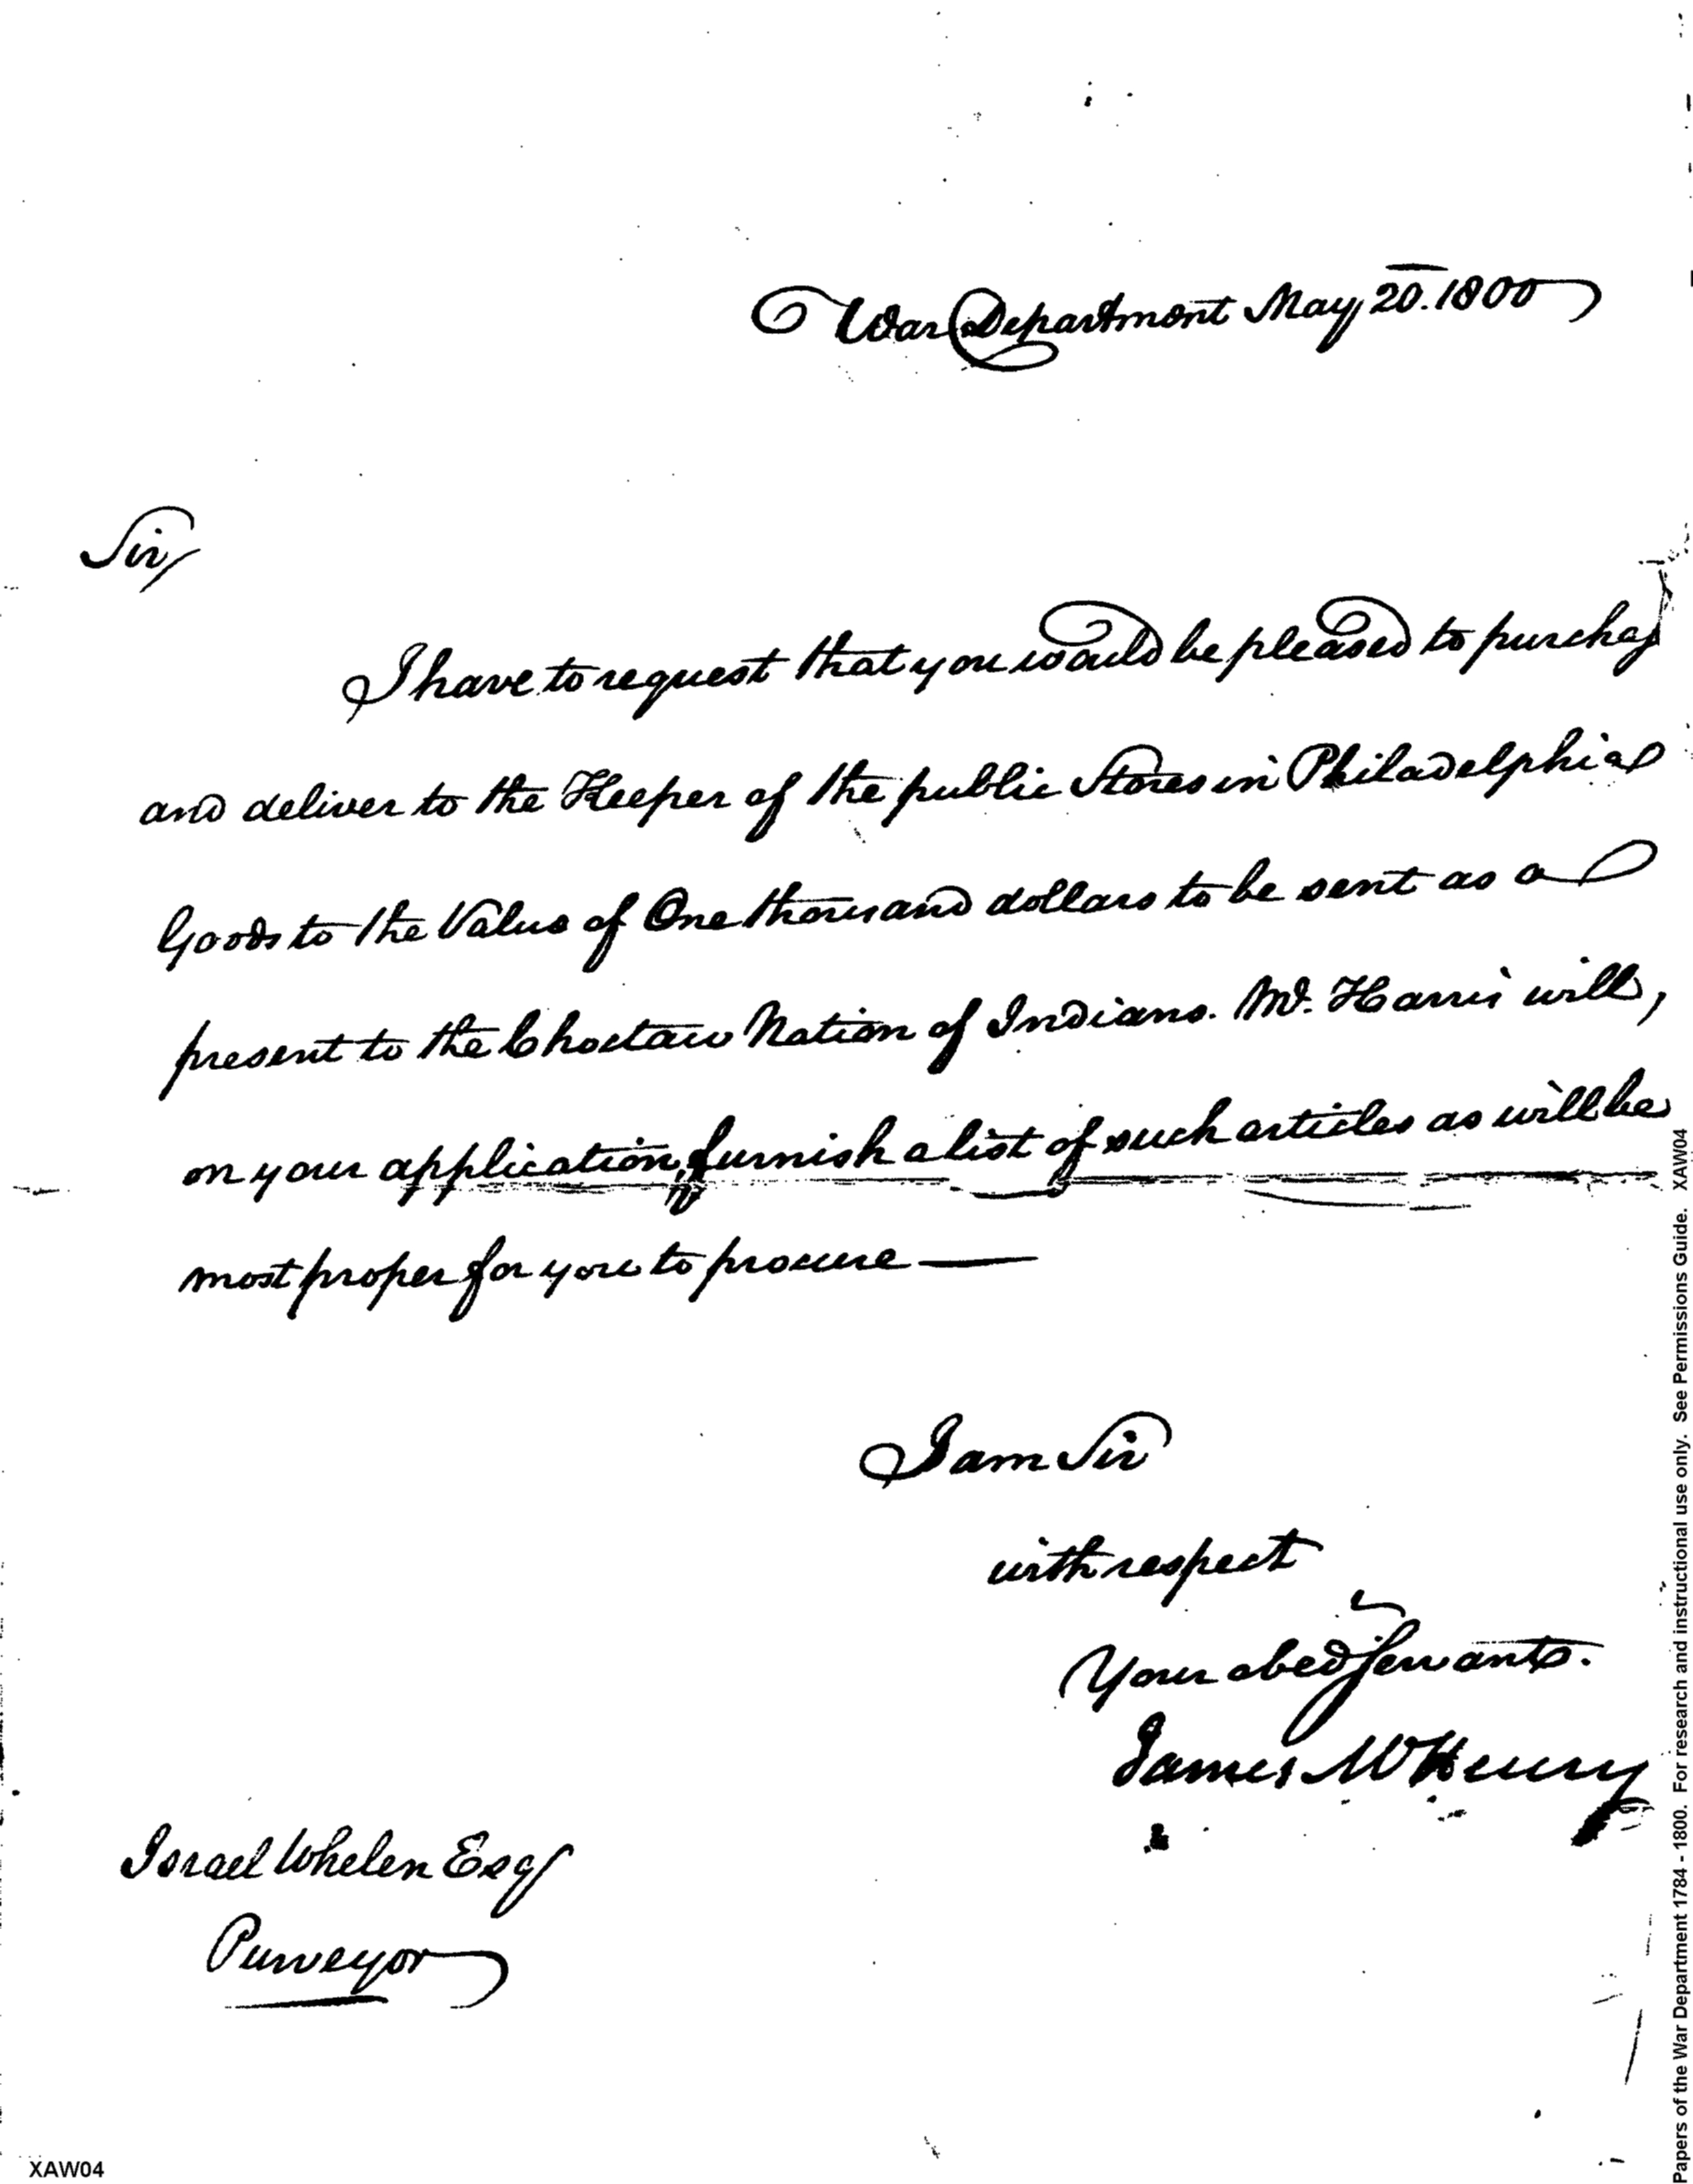 War Department May 20. 1800
Sir,
I have to request that you would be pleased to purchas
and deliver to the Keeper of the public Stores in Philadelphia
Goods to the Value of One thousand dollars to be sent as a
present to the Choctaw Nation of Indians. Mr. Harris will,
on your application, furnish a list of such articles as will be
most proper for you to procure —
I am Sir
with respect
Your obed Servants.
James McHenry
Israel Whelen Esq
Purveyor
XAW04
Papers of the War Department 1784 - 1800. For research and instructional use only. See Permissions Guide. XAW04